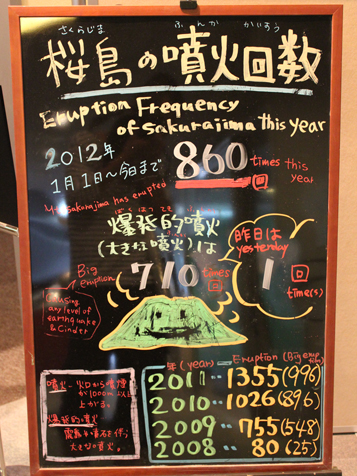 さくらじま ふんか かいすう
桜島の噴火回数
Eruption Frequency
of Sakurajima this year
2012年
1月1日〜今日まで 860 times this year
回
Mt. Sakurajima has erupted
ばくはつてき
爆発的噴火
(大きな噴火)は
昨日は
yesterday
Big
eruption
710 times
回
1 回
time(s)
Causing
any level of
earthquake
& Cinder
年(year) Eruption (Big eruption)
2011 ‥ 1355(996)
2010 ‥ 1026(896)
2009 ‥ 755(548)
2008 ‥ 80(25)
噴火‥火口から噴煙
が1000m以上
上がる。
爆発的噴火
噴石を伴う
大きな噴火。